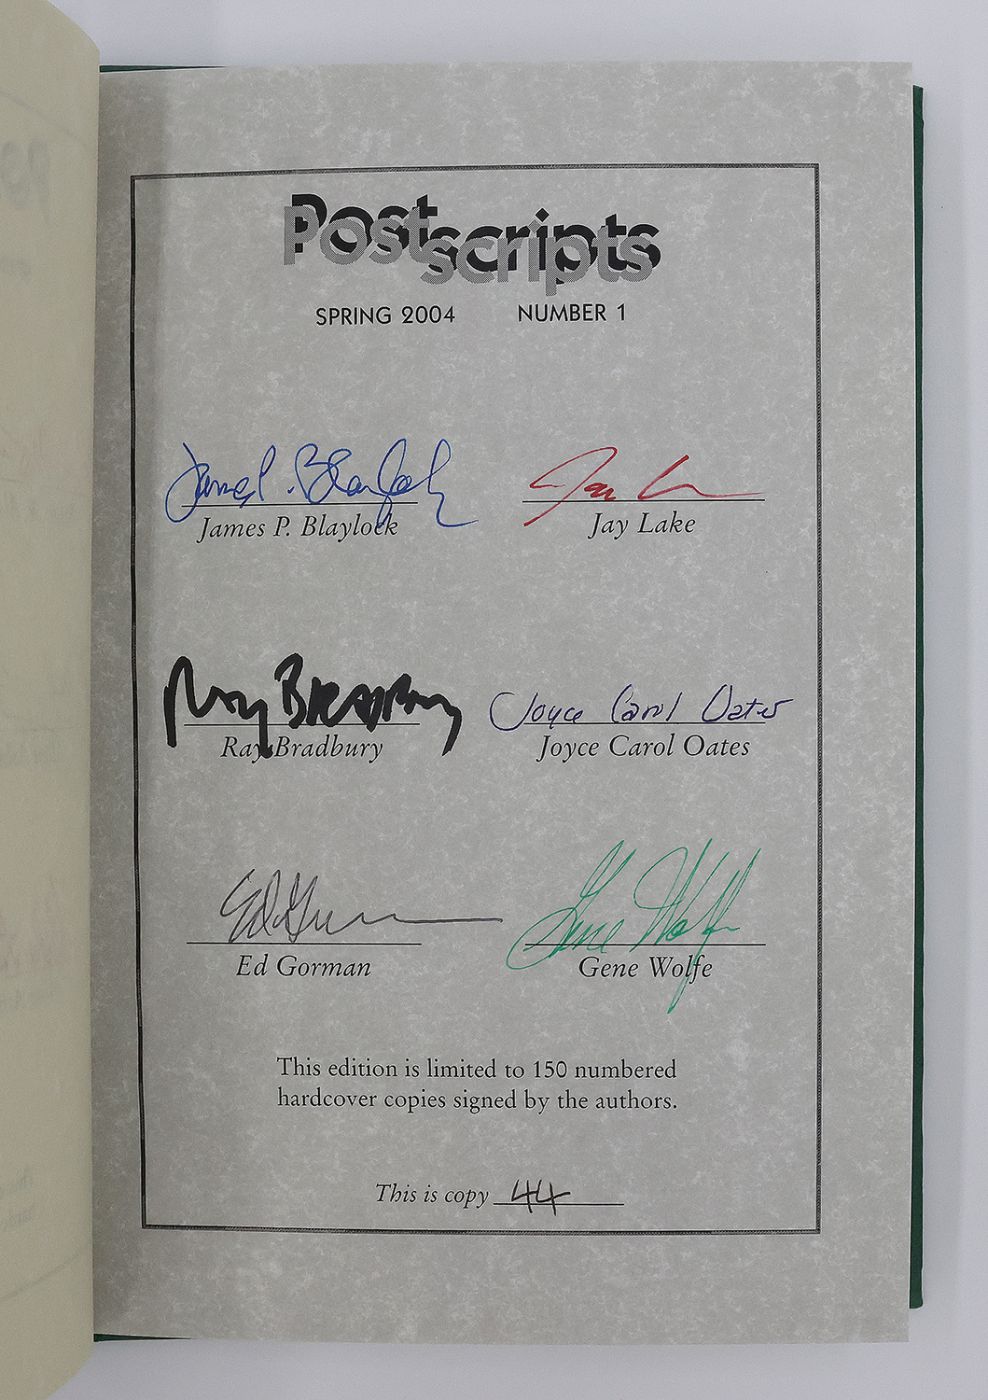 Postscripts
SPRING 2004 NUMBER 1
James P. Blaylock Jay Lake
James P. Blaylock Jay Lake
Ray Bradbury Joyce Carol Oates
Ray Bradbury Joyce Carol Oates
Ed Gorman Gene Wolfe
Ed Gorman Gene Wolfe
This edition is limited to 150 numbered
hardcover copies signed by the authors.
This is copy 44